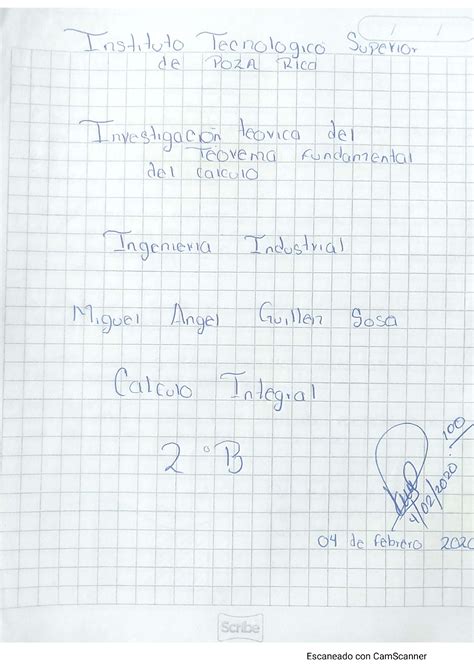 Instituto Tecnologico Superior
de POZA Rica
Investigación teorica del
Teorema Fundamental
del calculo
Ingenieria Industrial
Miguel Angel Guillen Sosa
Calculo Integral
2 °B
100
4/02/2020
04 de febrero 2020
Scribe
Escaneado con CamScanner